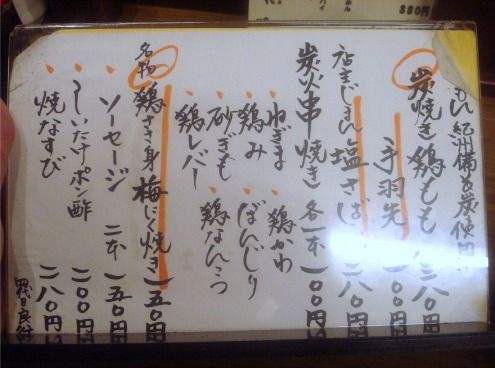 380円
もん 紀州備長炭使用
炭焼き鶏もも 三八〇円
手羽先 一〇〇円
店主じまん塩さば 二八〇円
炭火串焼き 各一本 一〇〇円
ねぎま
鶏かわ
鶏み
ぼんじり
砂ぎも
鶏なんこつ
鶏レバー
名物 鶏ささ身梅にく焼き 一五〇円
ソーセージ 二本 一五〇円
しいたけポン酢 二〇〇円
焼なすび 二八〇円